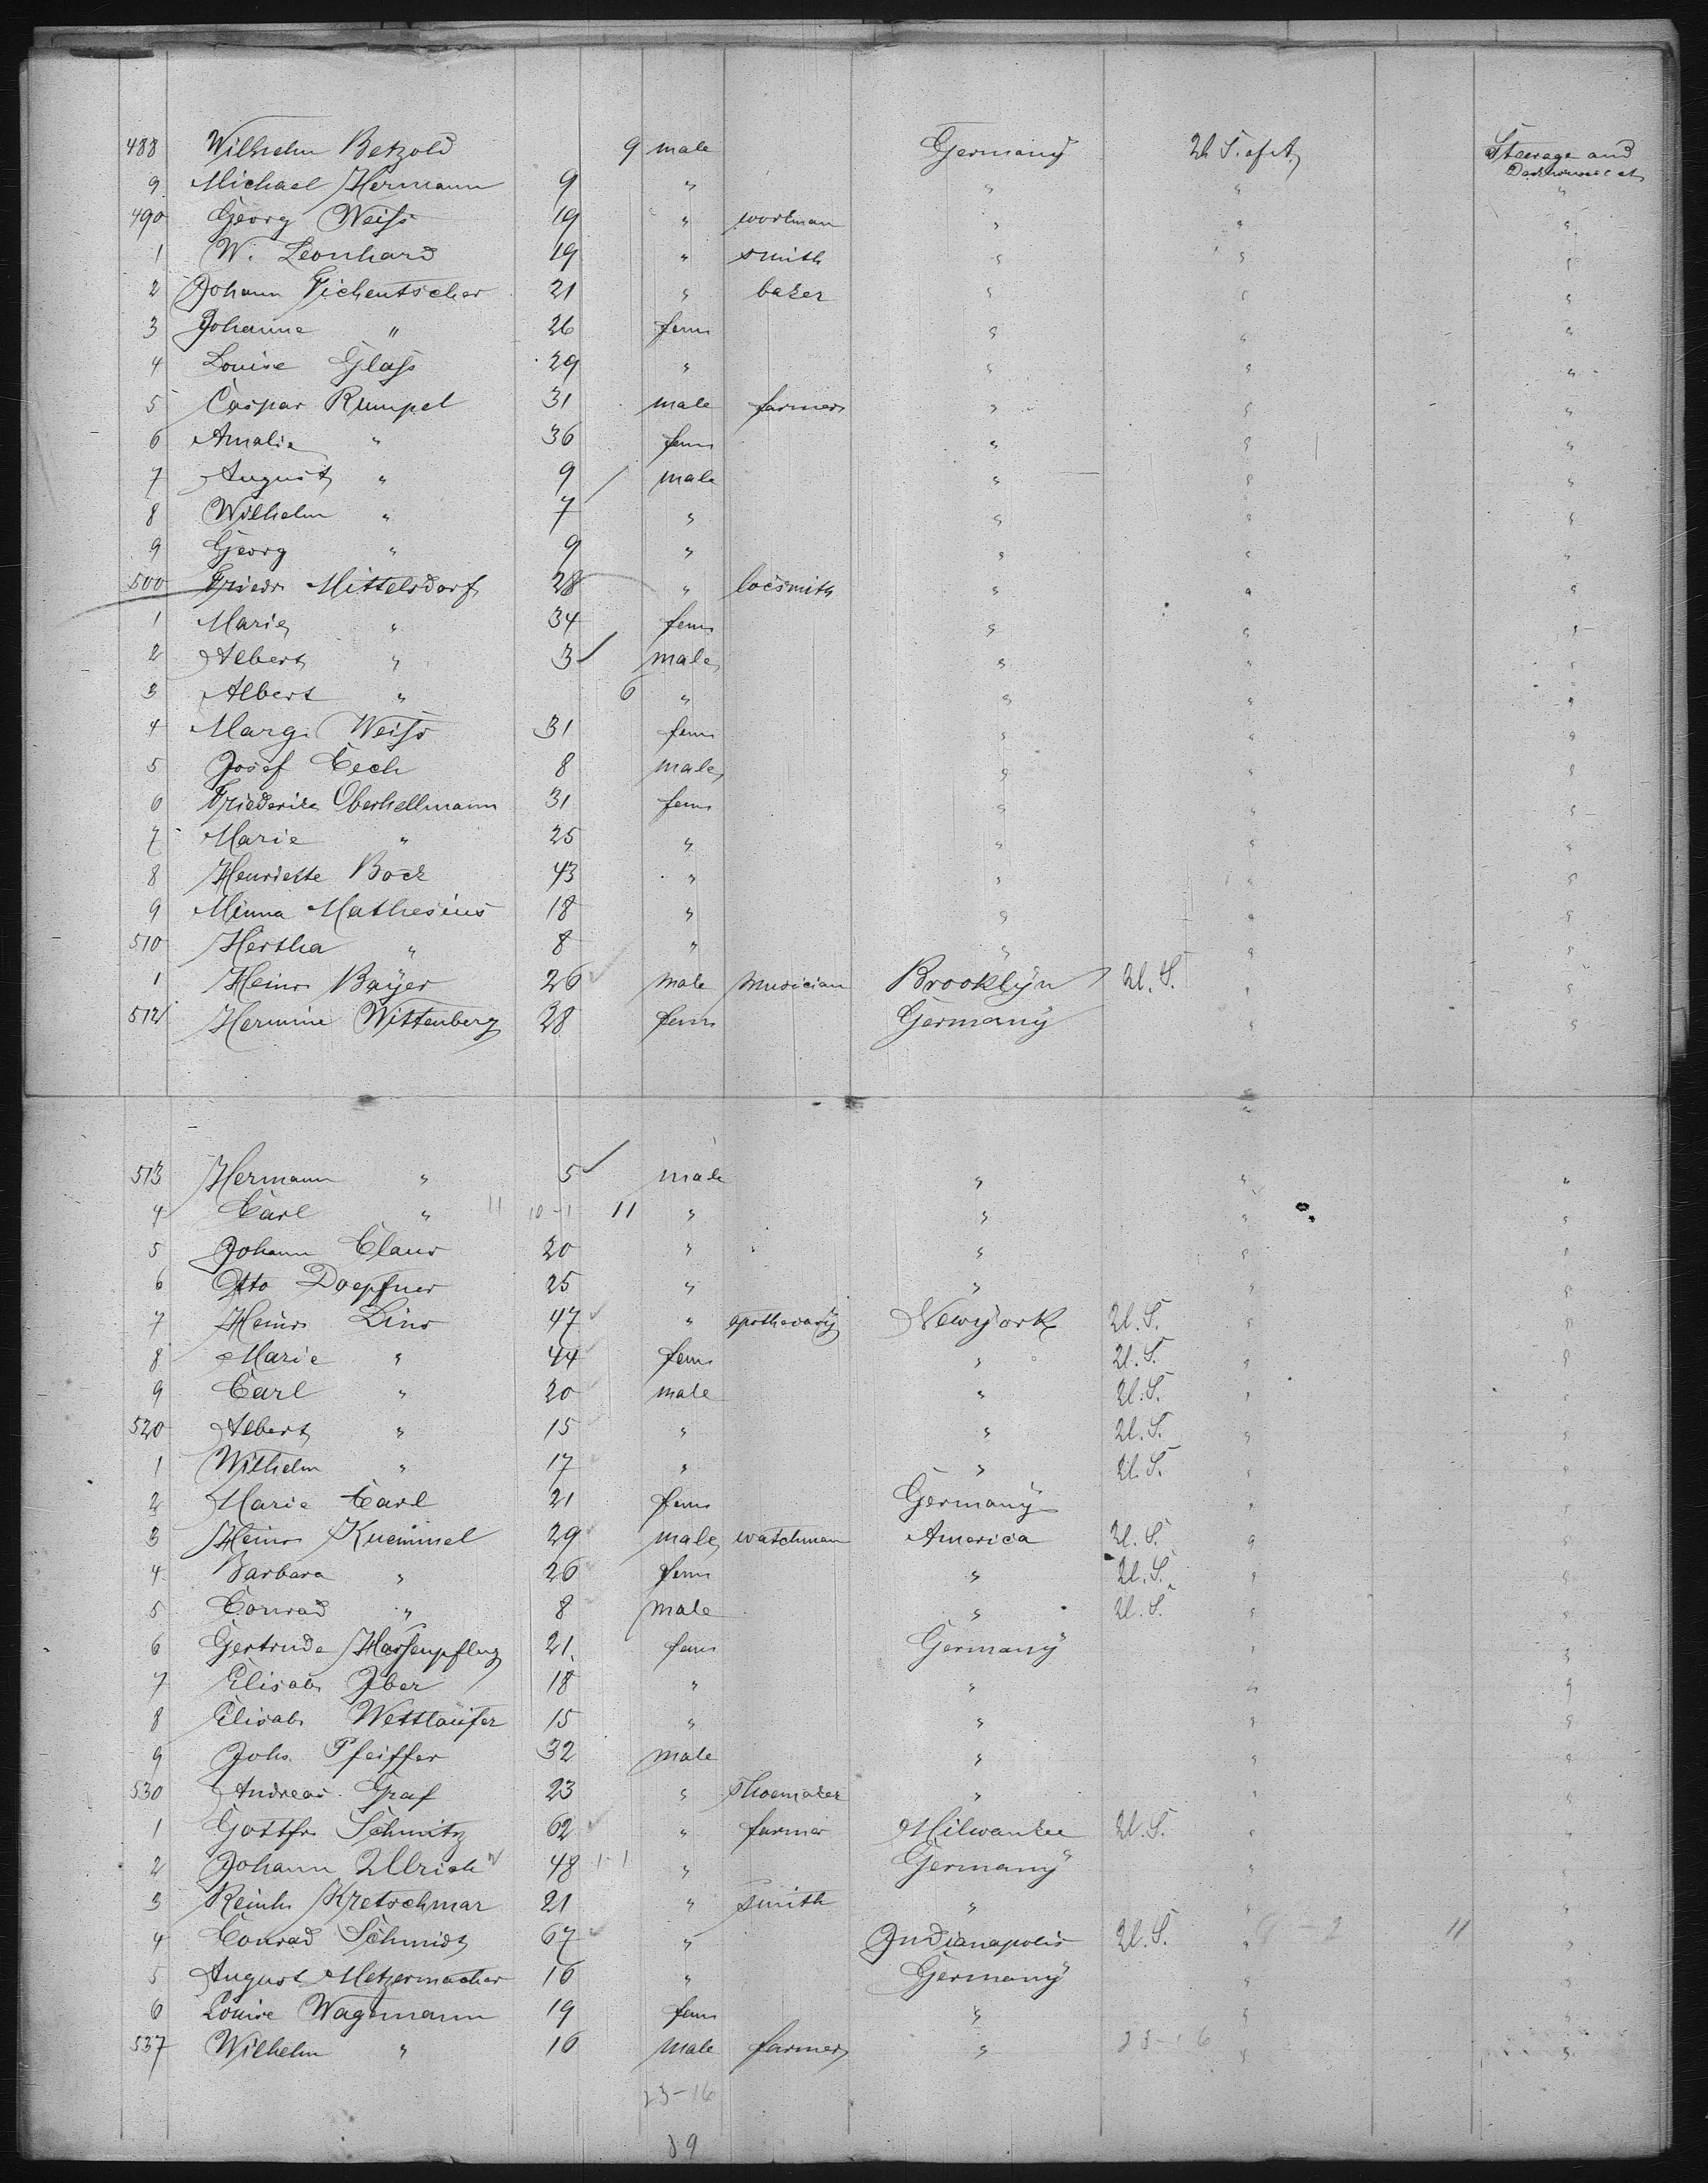 488 Wilhelm Betzold 9 male Germany U. S. of A. Steerage and
9 Michael Hermann 9 " " " "
490 Georg Weiſs 19 " workman " " "
1 W. Leonhard 19 " smith " " "
2 Johann Fichentscher 21 " baker " " "
3 Johanne " 26 fem " " "
4 Louise Glaſs 29 " " " "
5 Caspar Rumpel 31 male farmer " " "
6 Amalie " 36 fem " " "
7 August " 9 male " " "
8 Wilhelm " 7 " " " "
9 Georg " 9 " " " "
500 Friedr Mittelsdorf 28 " locsmith " " "
1 Marie " 34 fem " " "
2 Albert " 3 male " " "
3 Albert " 6 " " " "
4 Marg. Weiſs 31 fem " " "
5 Josef Cech 8 male " " "
6 Friederike Oberhellmann 31 fem " " "
7 Marie " 25 " " " "
8 Henriette Bock 43 " " " "
9 Minna Mathesius 18 " " " "
510 Hertha " 8 " " " "
1 Heinr Bayer 26 male musician Brooklyn U. S. " "
512 Hermine Wittenberg 28 fem Germany " "
513 Hermann " 5 male " " "
4 Carl " 11 10-1 11 " " " "
5 Johann Claus 20 " " " "
6 Otto Doepfner 25 " " " "
7 Heinr Lins 47 " apothecary Newyork U. S. " "
8 Marie " 44 fem " U. S. " "
9 Carl " 20 male " U. S. " "
520 Albert " 15 " " U. S. " "
1 Wilhelm " 17 " " U. S. " "
2 Marie Carl 21 fem Germany " "
3 Heinr Kuemmel 29 male watchman America U. S. " "
4 Barbara " 26 fem " U. S. " "
5 Conrad " 8 male " U. S. " "
6 Gertrude Haſsenpflug 21 fem Germany " "
7 Elisab Iber 18 " " " "
8 Elisab Wettlaufer 15 " " " "
9 Johs Pfeiffer 32 male " " "
530 Andreas Graf 23 " shoemaker " " "
1 Gottfr Schmitz 62 " farmer Milwaukee U. S. " "
2 Johann Ullrich 48 1-1 " Germany " "
3 Reinh Kretschmar 21 " smith " " "
4 Conrad Schmidt 67 " Indianapolis U. S. " 2 11 "
5 August Metzermacher 16 " Germany " "
6 Louise Wagemann 19 fem " " "
537 Wilhelm " 16 male farmer " " "
23-16
89